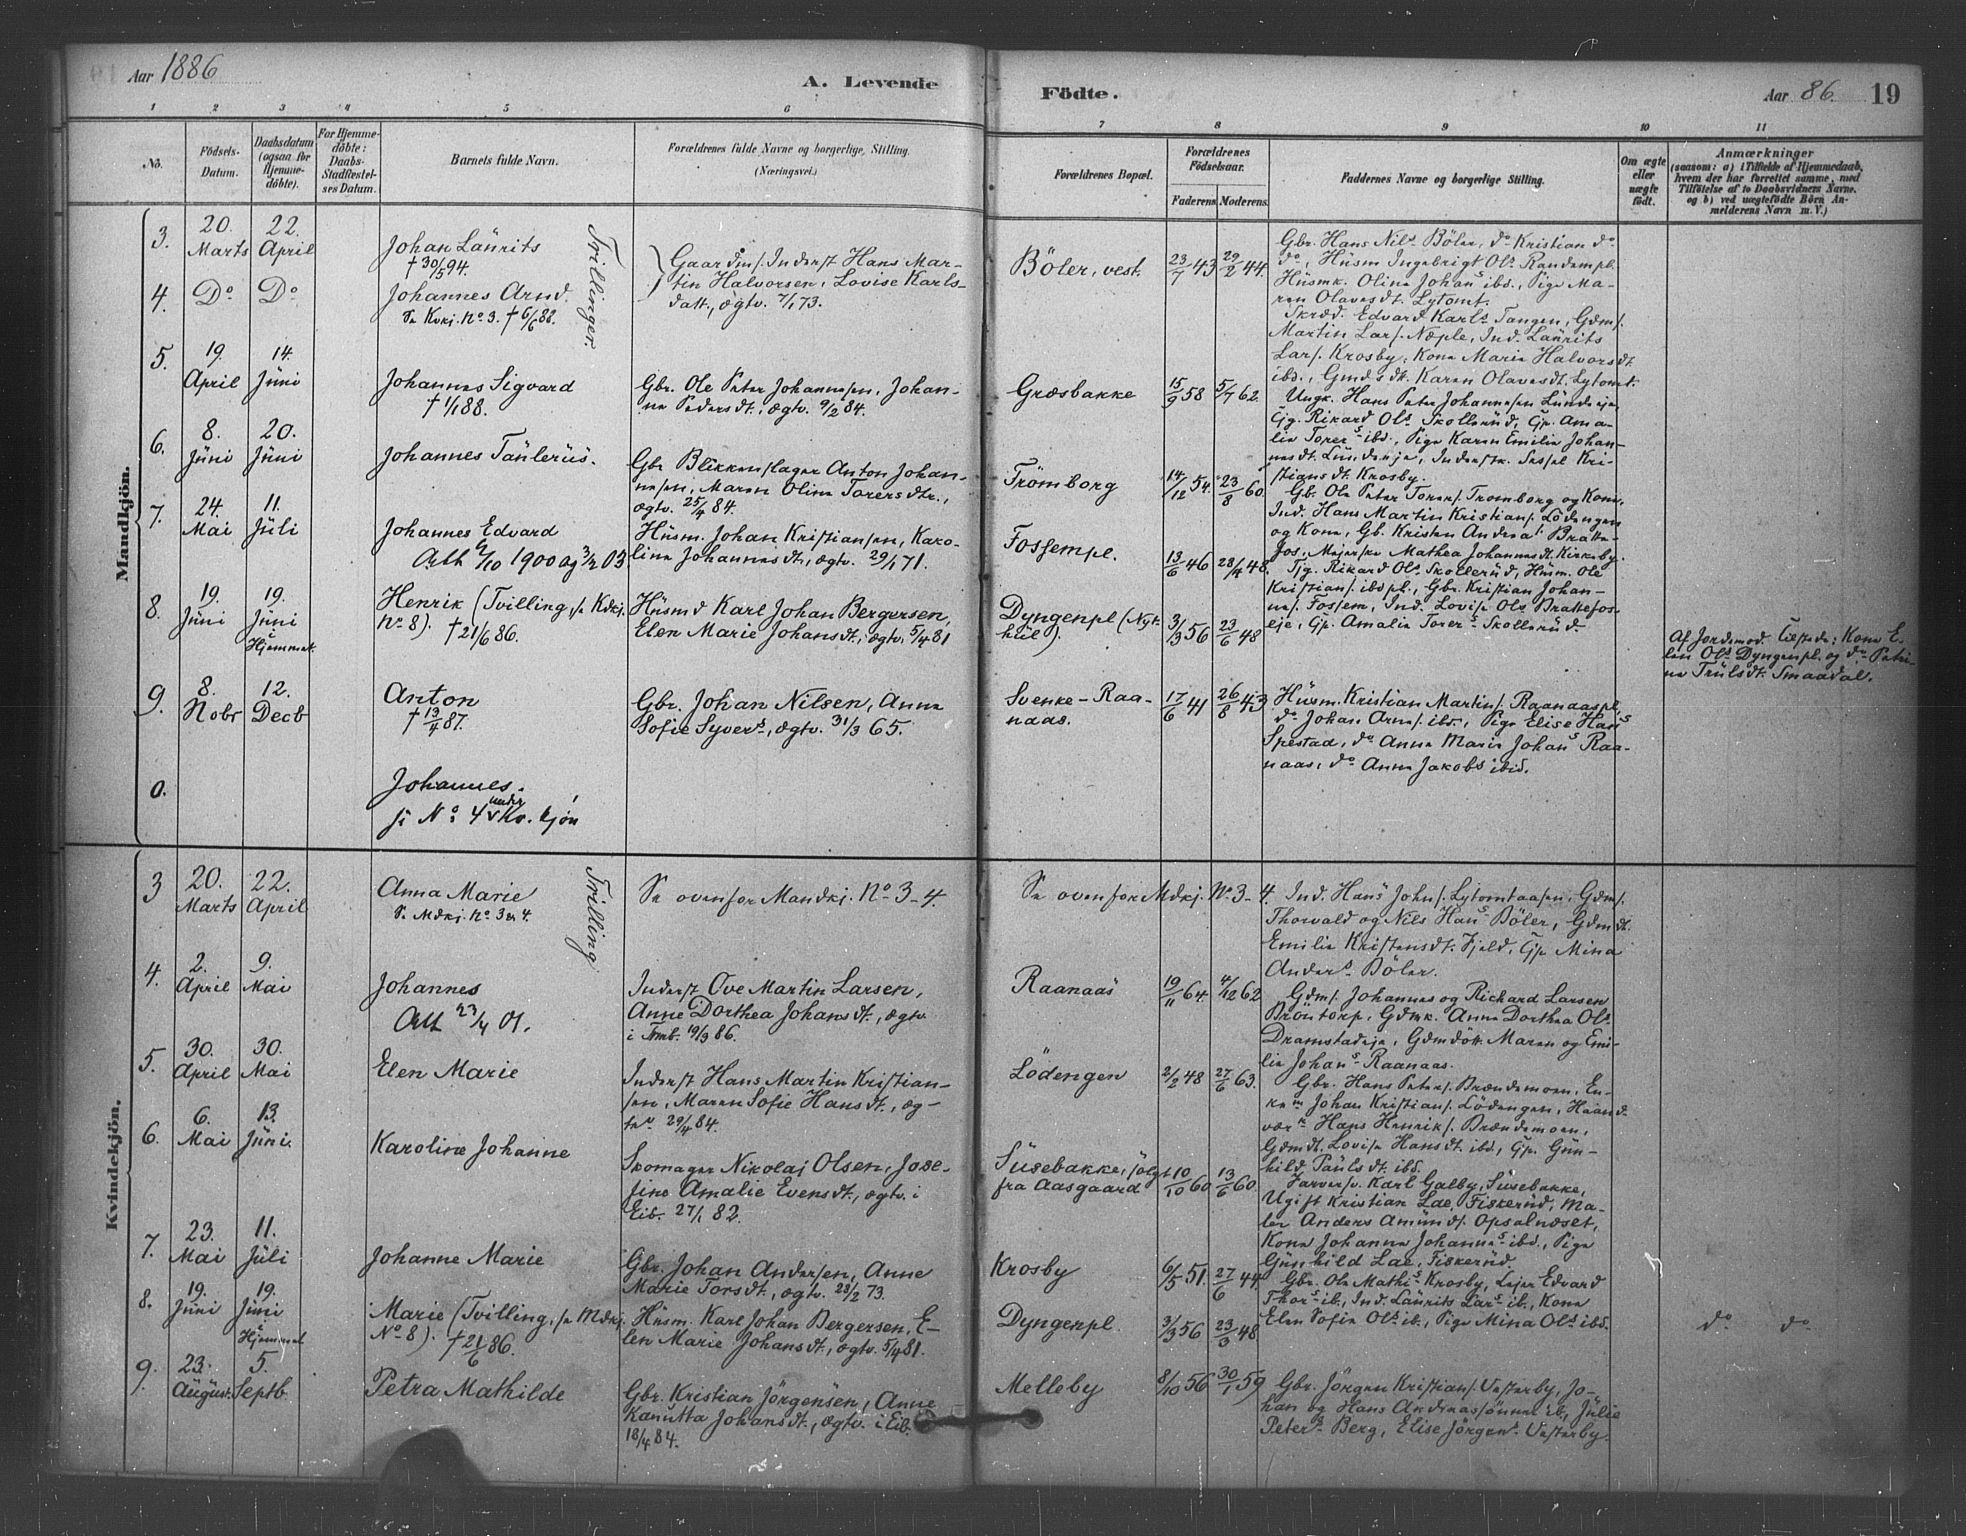 Aar 1886
A. Levende
Födte.
Aar 86. 19
1 2 3 4 5 6 7 8 9 10 11
No.
Födsels-
Datum.
Daabsdatum
(ogsaa for
Hjemme-
döbte).
For Hjemme-
döbte:
Daabs-
Stadfæstel-
ses Datum.
Barnets fulde Navn.
Forældrenes fulde Navne og borgerlige, Stilling.
(Næringsvei.)
Forældrenes Bopæl.
Forældrenes
Födselsaar.
Faderens Moderens.
Faddernes Navne og borgerlige Stilling.
Om ægte
eller
uægte
födt.
Anmærkninger
(saasom: a) i Tilfælde af Hjemmedaab,
hvem der har forrettet samme, med
Tilföielse af to Daabsvidners Navne.
og b) ved uægtefödte Börn An-
melderens Navn m. V.)
Mandkjön.
3.
20.
Marts
22.
April
Johan Laurits
† 30/5 94.
Trillinger.
Gaardm/. Inderst Hans Mar-
tin Halvorsen, Lovise Karls-
datt., ægtv. 7/1 73.
Böler, vest.
23/7 43
29/2 44.
Gbr. Hans Nils. Böler, do Kristian do
do, Husm Ingebrigt Ols. Randempl.
Husmk. Olina Johans ibd., Pige Ma-
ren Olavesdt. Lytomt.
4.
Do
Do
Johannes Arnd.
Se Kvkj. No 3. † 6/6 88.
Skræd. Edvard Karls Tangen, Gdm/.
Martin Lars/. Næple, Ind. Laurits
Lars/. Krosby, Kone Marie Halvorsdt
ibd., Gmdsdt. Karen Olavesdt. Lytomt.
5.
19.
April
14.
Juni
Johannes Sigvard
† 1/1 88.
Gbr. Ole Peter Johannesen, Johan-
ne Pedersdt., ægtv. 9/2 84.
Græsbakke
15/9 58
5/7 62.
Ungk. Hans Peter Johannesen Lundeeje,
Gg. Rikard Ols Skollerud, Gp. Ama-
lie Torers ibd., Pige Karen Emilie Johan-
nesdt. Lundeeje, Inderstk. Sessel Kri-
stiansdt. Krosby.
6.
8.
Juni
20.
Juni
Johannes Taulerus.
Gbr Blikkenslager Anton Johan-
nesen, Maren Olina Torersdtr.,
ægtv. 25/4 84.
Trömborg
14/12 54.
23/8 60.
Gb. Ole Peter Torers/. Tromborg og Kone,
Ind. Hans Martin Kristians/. Lödengen
og Kone, Gb. Kristen Andreas Bratte-
fos, Mejerske Mathea Johannesdt. Kirkeby.
7.
24.
Mai
11.
Juli
Johannes Edvard
Att 1900 og 3/2 03
Husm. Johan Kristiansen, Karo-
line Johannesdt., ægtv. 29/1 71.
Fossempl.
13/6 46
28/4 48.
Tjg. Rikard Ols Skollerud, Husm. Ole
Kristians/. ibdpl., Gbr. Kristian Johan-
nes/. Fossem, Ind. Lovise Ols Brattefos-
eje, Gp. Amalie Torers Skollerud.
8.
19.
Juni
19.
Juni
i
Hjemmet
Henrik (Tvilling, se Kvkj.
No 8). † 21/6 86.
Husmd Karl Johan Bergersen,
Elen Marie Johansdt., ægtv. 5/4 81
Dyngenpl (Nyt-
hul).
3/3 56
23/6 48
Af Jordemod. Tilstede: Kone E-
len Ols Dyngenpl. og do Petri-
ne Trulsdt. Smaadal.
9.
8.
Nobr
12.
Decb
Anton
† 13/4 87.
Gbr. Johan Nilsen, Anne
Sofie Syvers, ægtv. 31/3 65.
Svenke-Raa-
naas.
17/6 41
26/8 43
Husm. Kristian Martins/. Raanaaspl.,
do Johan Arnes/. ibd., Pige Elise Hans
Spestad, do Anne Marie Johans Raa-
naas, do Anne Jakobs ibid.
0.
Johannes.
se No 4 under Kv. kjön
Kvindekjön.
3
20.
Marts
22.
April
Anna Marie
Se Mdkj. No 3 og 4.
Trilling
Se ovenfor Mandkj. No 3-4
Se ovenfor Mdkj. No 3-4.
Ind. Hans Johns/. Lytomtaasen, Gdm/.
Thorvald og Nils Hans Böler, Gdmdt.
Emilie Kristensdt. Fjeld, Gp Mina
Anders. Böler.
4.
2.
April
9.
Mai
Johannes
Att 23/4 01.
Inderst Ove Martin Larsen,
Anne Dorthea Johansdt., ægtv
i Trmb. 19/3 86.
Raanaas
19/11 64.
4/12 62
Gdms/. Johannes og Richard Larsen
Bröntorp, Gdmk. Anne Dorthea Ols.
Dramstadeje, Gdmdött. Maren og Emi-
lie Johans Raanaas.
5.
30.
April
30.
Mai
Elen Marie
Inderst Hans Martin Kristian-
sen, Maren Sofie Hansdt., æg-
tev 29/4 84.
Lödengen
2/2 48
27/6 63.
Gbr. Hans Peters/. Brændemoen, En-
kem Johan Kristians/. Lödengen, Haand-
værk Hans Henriks/. Brændemoen,
Gdmdt. Lovise Hansdt. ibd., Gp. Gun-
hild Paulsdt. ibd.
6.
6.
Mai
13.
Juni.
Karoline Johanne
Skomager Nikolaj Olsen, Jose-
fine Amalie Evensdt., ægtv. i
Eib. 27/1 82.
Susebakke, fölgt
fra Aasgaard
10/10 60
13/6 60
Farversv. Karl Galby, Susebakke,
Ugift Kristian Lae, Fiskerud, Ma-
ler Anders Amunds/. Opsalnæset,
Kone Johanne Johannes ibd., Pige
Gunhild Lae, Fiskerud.
7.
23.
Mai
11.
Juli
Johanne Marie
Gbr. Johan Andersen, Anne
Marie Torsdt., ægtv. 28/2 73.
Krosby
6/5 51.
27/6 44.
Gbr. Ole Mathis Krosby, Lejer Edvard
Thors ib., Ind. Laurits Lars. ib., Kone
Elen Sofie Ols ib., Pige Mina Ols ibd.
8.
19.
Juni
19.
Juni
i
Hjemmet
Marie (Tvilling, se Mdkj.
No 8). † 21/6 86.
Husm. Karl Johan Bergersen, E-
len Marie Johansdt., ægtv. 5/4 81.
Dyngenpl.
3/3 56
23/3 48
do do
9.
23.
August.
5.
Septb.
Petra Mathilde
Gbr. Kristian Jörgensen, Anne
Kanutta Johansdt., ægtv. i Eib.
18/4 84.
Melleby
8/10 56
30/1 59
Gbr. Jörgen Kristians/. Vesterby, Jo-
han og Hans Andreassönner ib., Julie
Peters. Berg, Elise Jörgens. Vesterby.